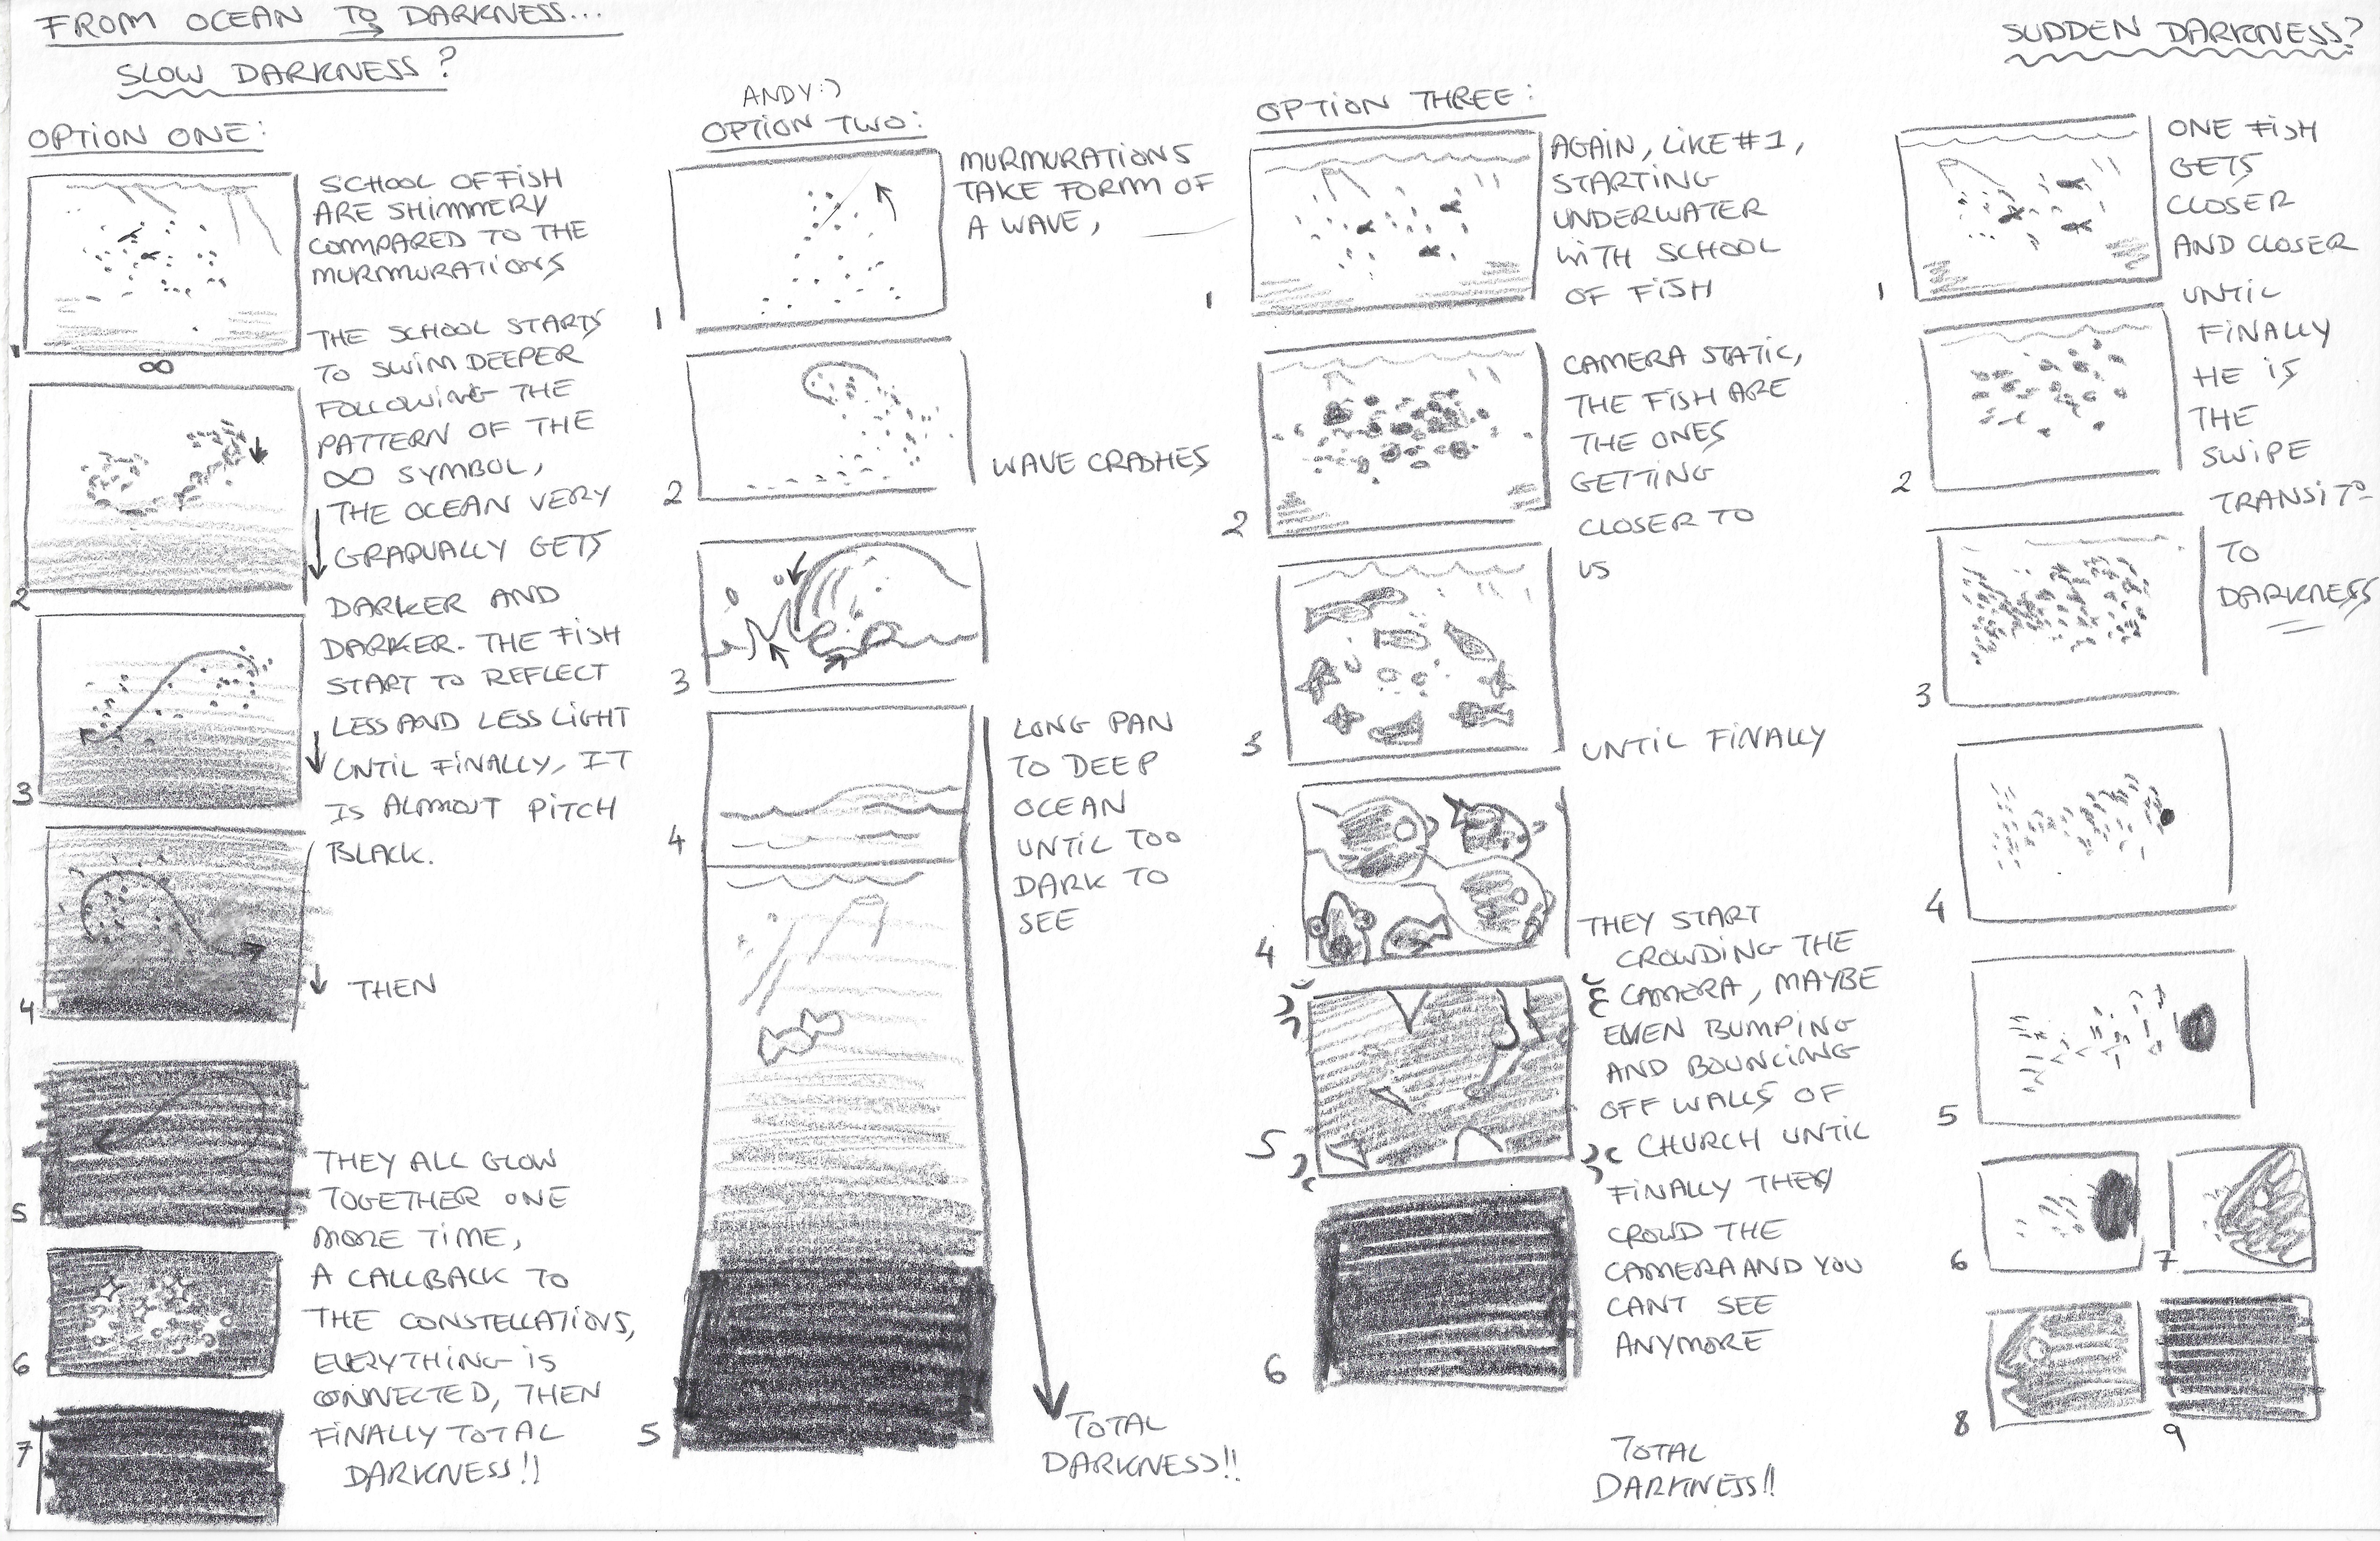 FROM OCEAN TO DARKNESS...
SLOW DARKNESS?
OPTION ONE:
SCHOOL OF FISH
ARE SHIMMERY
COMPARED TO THE
MURMURATIONS
THE SCHOOL STARTS
TO SWIM DEEPER
FOLLOWING THE
PATTERN OF THE
∞ SYMBOL,
THE OCEAN VERY
GRADUALLY GETS
DARKER AND
DARKER. THE FISH
START TO REFLECT
LESS AND LESS LIGHT
UNTIL FINALLY, IT
IS ALMOUT PITCH
BLACK.
THEN
THEY ALL GLOW
TOGETHER ONE
MORE TIME,
A CALLBACK TO
THE CONSTELLATIONS,
EVERYTHING IS
CONNECTED, THEN
FINALLY TOTAL
DARKNESS!!
1
∞
2
3
4
5
6
7
ANDY:)
OPTION TWO:
MURMURATIONS
TAKE FORM OF
A WAVE,
WAVE CRASHES
LONG PAN
TO DEEP
OCEAN
UNTIL TOO
DARK TO
SEE
TOTAL
DARKNESS!!
1
2
3
4
5
OPTION THREE:
AGAIN, LIKE #1,
STARTING
UNDERWATER
WITH SCHOOL
OF FISH
CAMERA STATIC,
THE FISH ARE
THE ONES
GETTING
CLOSER TO
US
UNTIL FINALLY
THEY START
CROWDING THE
CAMERA, MAYBE
EVEN BUMPING
AND BOUNCING
OFF WALLS OF
CHURCH UNTIL
FINALLY THEY
CROWD THE
CAMERA AND YOU
CANT SEE
ANYMORE
TOTAL
DARKNESS!!
1
2
3
4
5
6
SUDDEN DARKNESS?
ONE FISH
GETS
CLOSER
AND CLOSER
UNTIL
FINALLY
HE IS
THE
SWIPE
TRANSITO
TO
DARKNESS
1
2
3
4
5
6
7
8
9